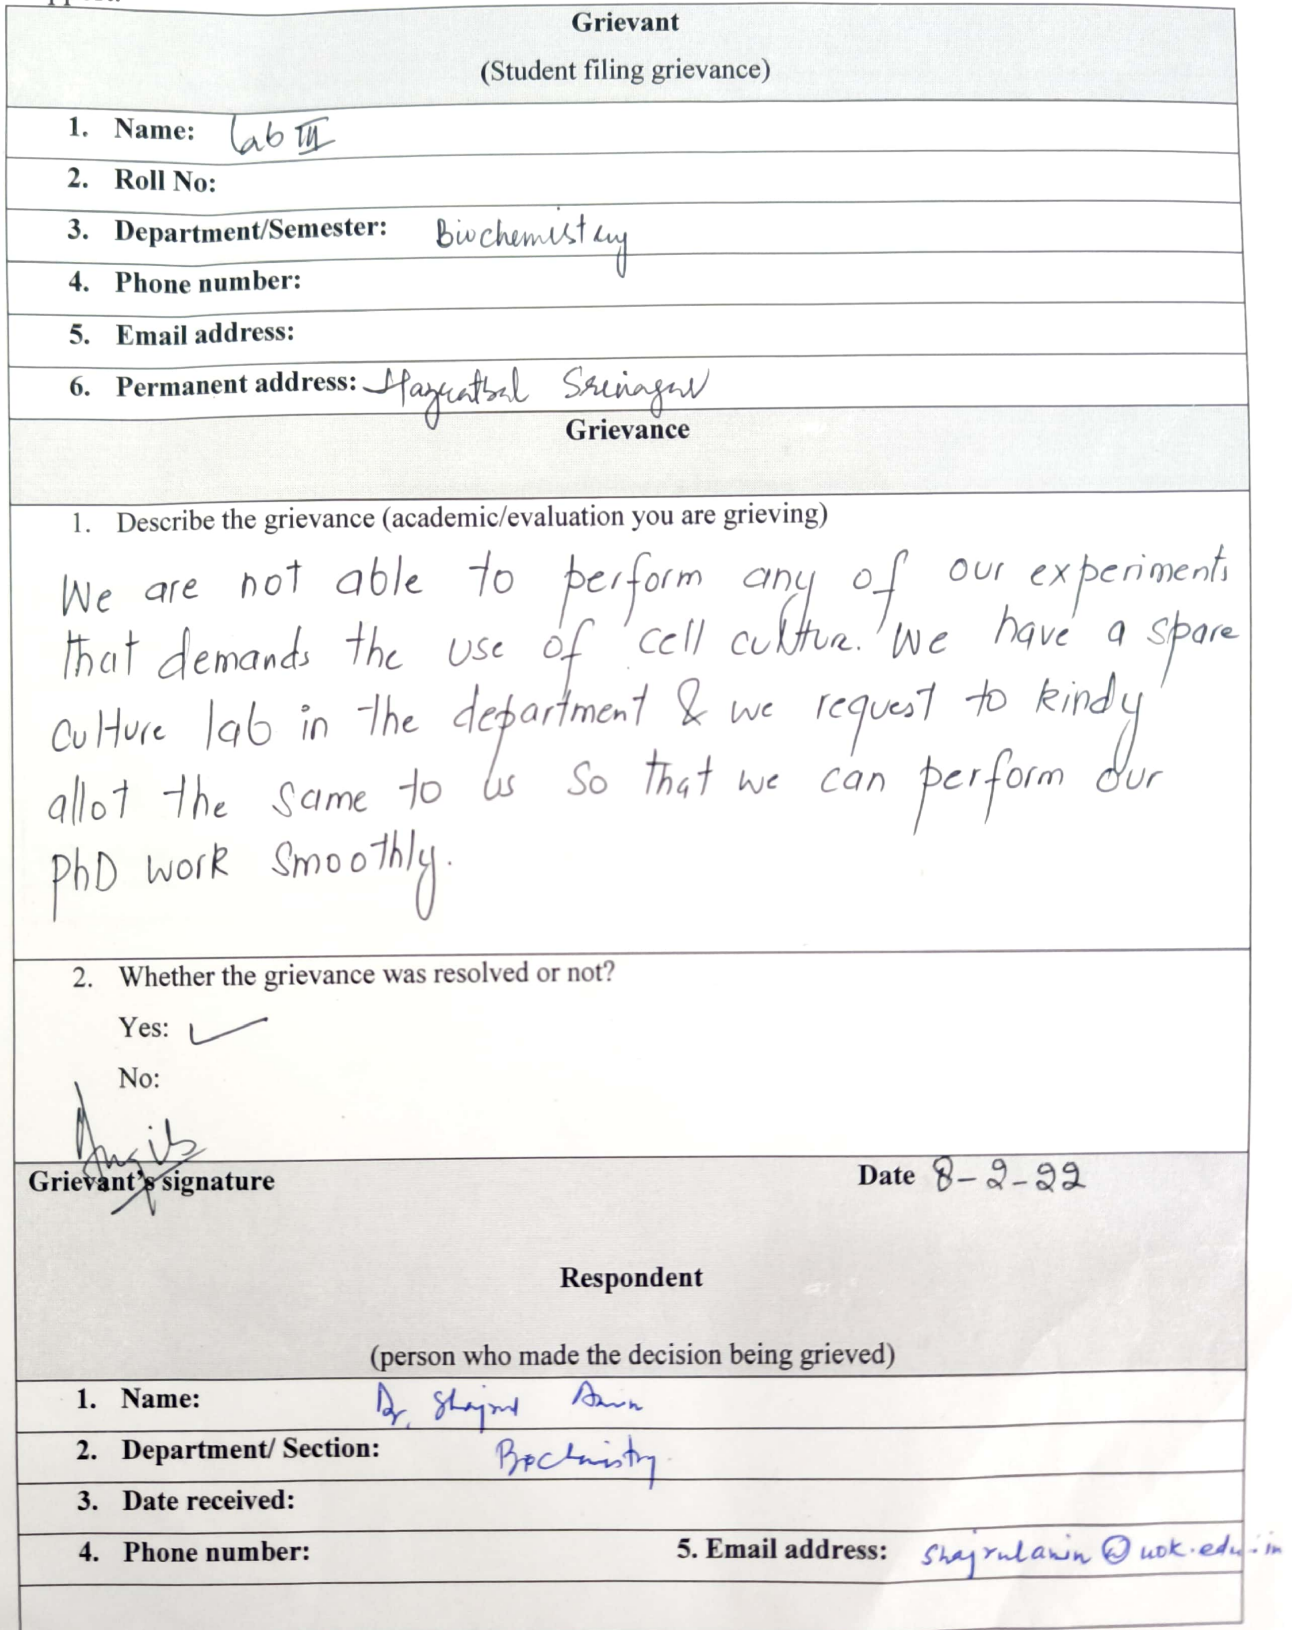 Grievant
(Student filing grievance)
1. Name: Lab III
2. Roll No:
3. Department/Semester: Biochemistry
4. Phone number:
5. Email address:
6. Permanent address: Hazratbal Srinagar
Grievance
1. Describe the grievance (academic/evaluation you are grieving)
We are not able to perform any of our experiments
that demands the use of cell culture. We have a spare
culture lab in the department & we request to kindy
allot the same to us so that we can perform our
PhD work smoothly.
2. Whether the grievance was resolved or not?
Yes: ✓
No:
Grievant's signature Date 8-2-22
Respondent
(person who made the decision being grieved)
1. Name: Dr. Shajrul Amin
2. Department/ Section: Biochemistry
3. Date received:
4. Phone number: 5. Email address: shajrulamin@uok.edu.in